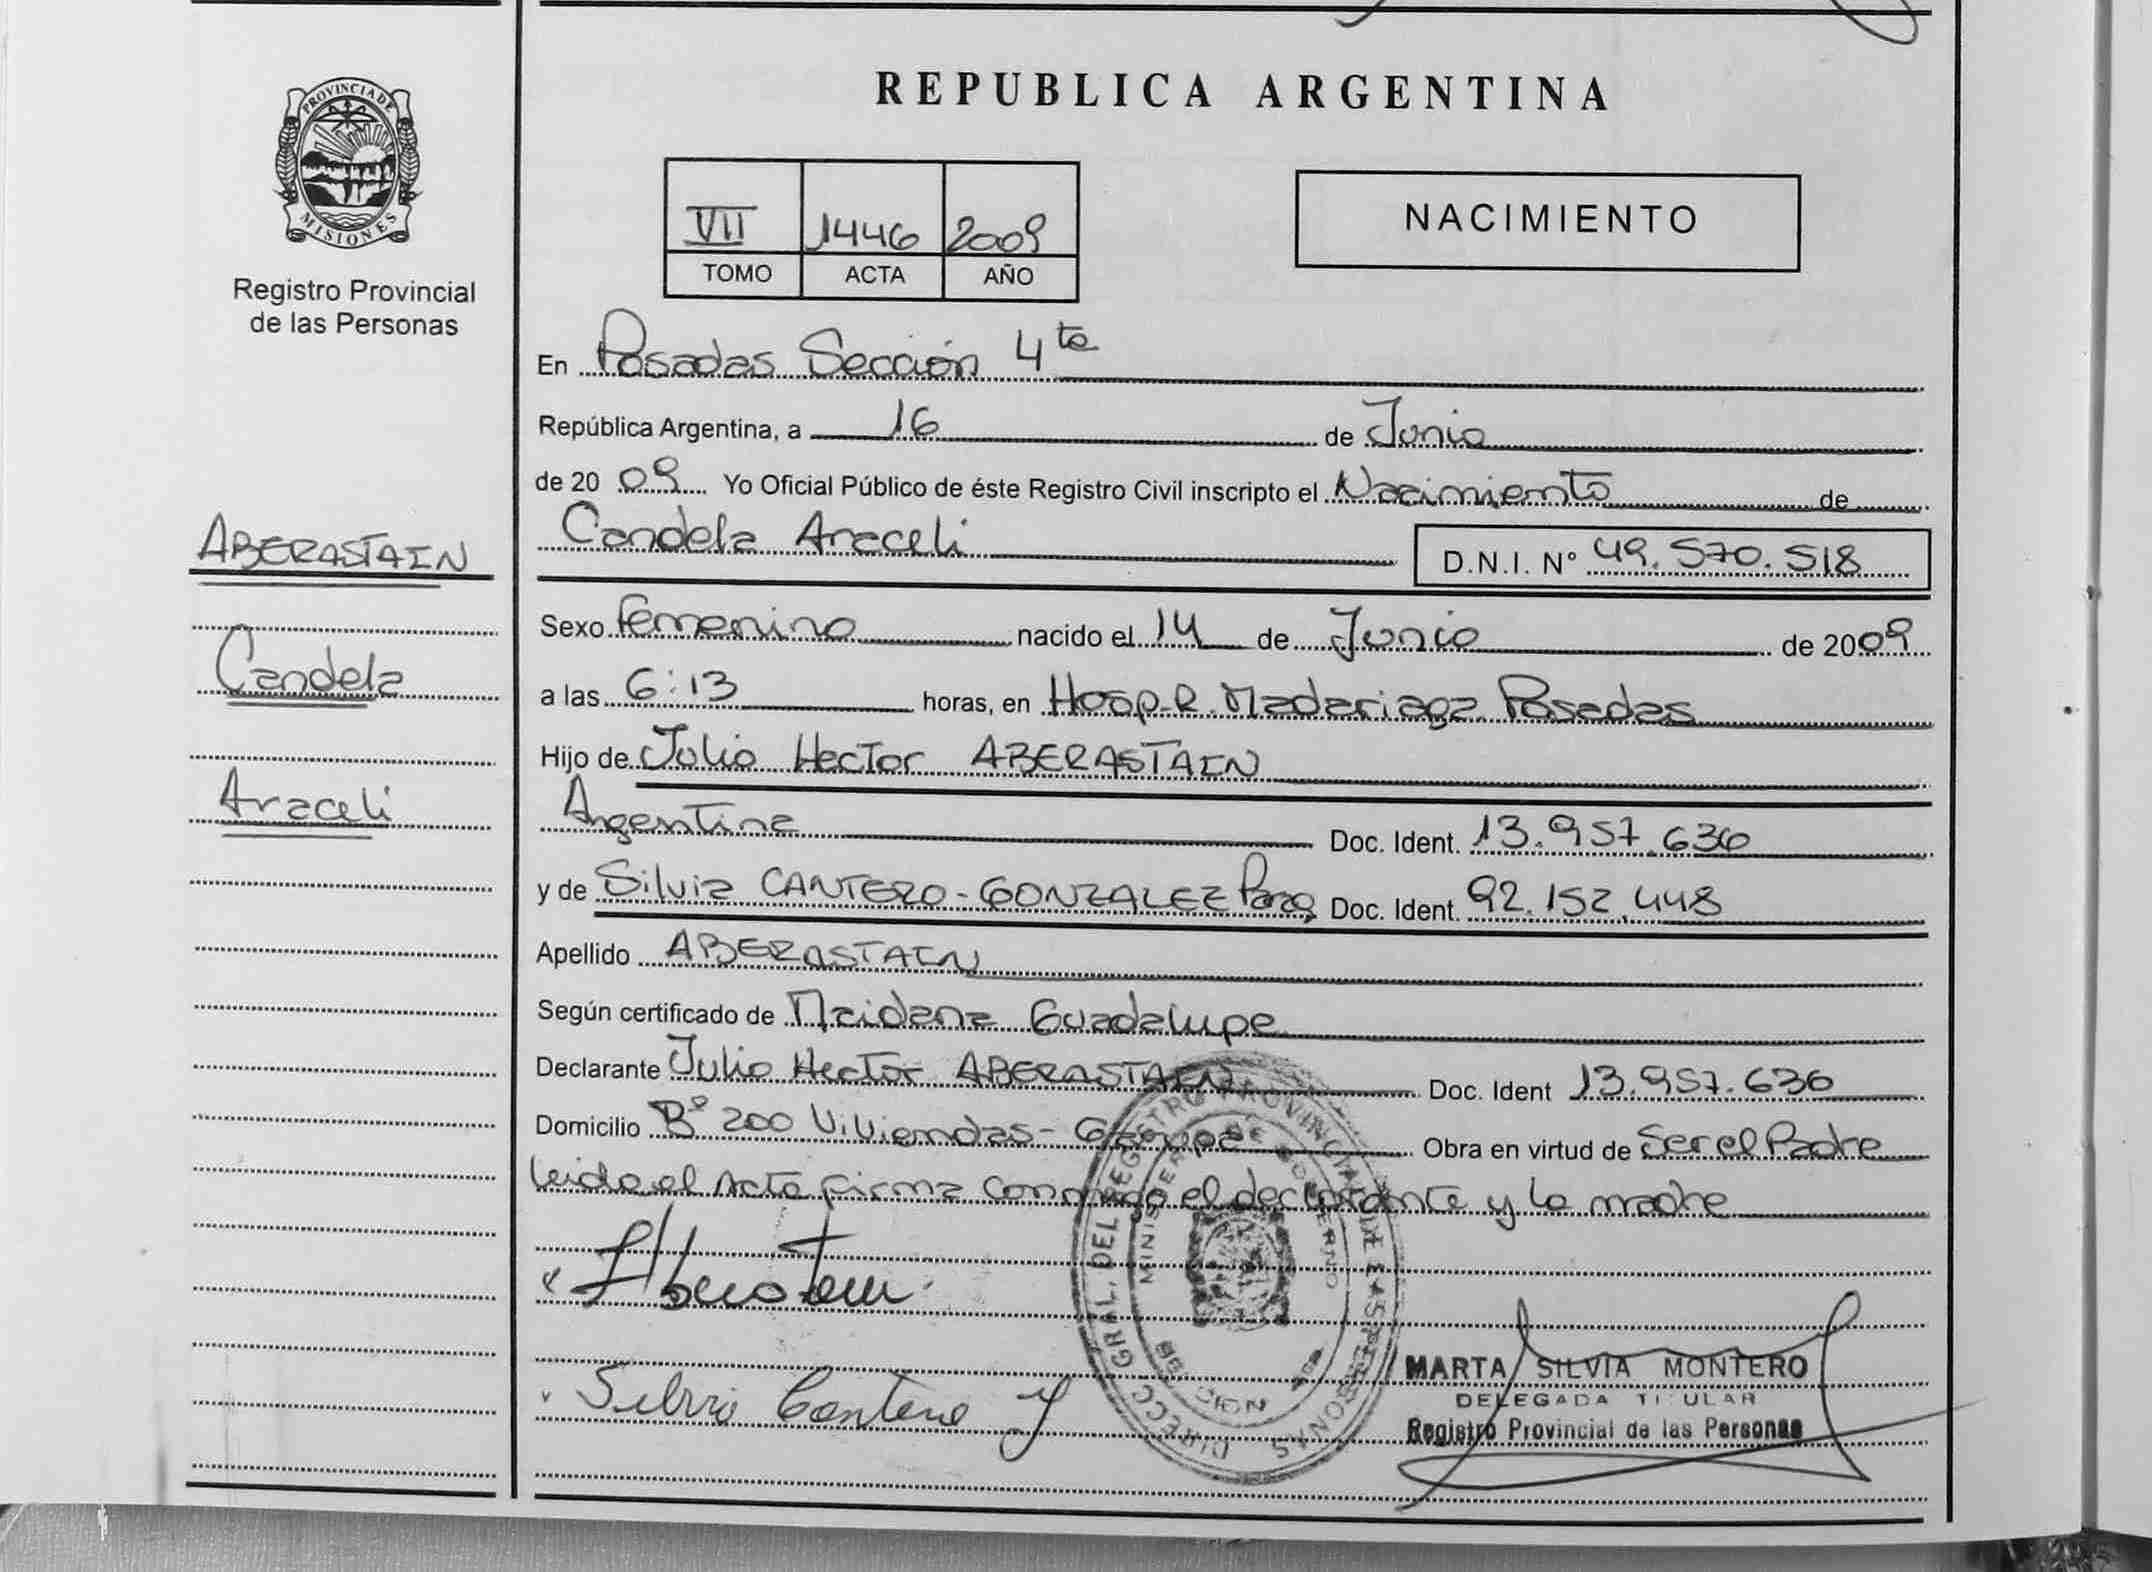 PROVINCIA DE
MISIONES
Registro Provincial
de las Personas
ABERASTAIN
Candela
Araceli
REPUBLICA ARGENTINA
VII 1446 2009
TOMO ACTA AÑO
NACIMIENTO
En Posadas Sección 4ta
República Argentina, a 16 de Junio
de 2009 Yo Oficial Público de éste Registro Civil inscripto el Nacimiento de
Candela Araceli D.N.I. Nº 49.570.518
Sexo Femenino nacido el 14 de Junio de 2009
a las 6:13 horas, en Hosp. R. Madariaga Posadas
Hijo de Julio Hector ABERASTAIN
Argentina Doc. Ident. 13.957.636
y de Silvia CANTERO-GONZALEZ Parag Doc. Ident. 92.152.448
Apellido ABERASTAIN
Según certificado de Maidana Guadalupe
Declarante Julio Hector ABERASTAIN Doc. Ident 13.957.636
Domicilio Bº 200 Viviendas- Garupa Obra en virtud de Ser el Padre
leida el Acta firma conmigo el declarante y la madre
Silvia Cantero
DIRECC GRAL. DEL REGISTRO PROVINCIAL DE LAS PERSONAS
MINISTERIO DE GOBIERNO
MARTA SILVIA MONTERO
DELEGADA TITULAR
Registro Provincial de las Personas